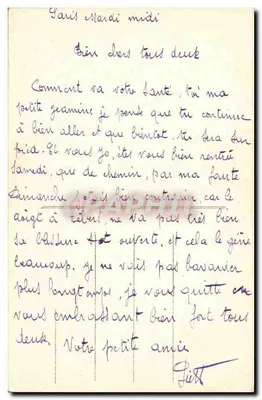 Paris Mardi midi
Bien chers tous deux
Comment va votre santé, toi ma
petite Jeanine je pense que tu continue
à bien aller et que bientôt tu sera sur
pied. Et vous Jo, êtes vous bien rentré
Samedi, que de chemin, par ma faute
Dimanche bien car le
doigt à ne va pas très bien
sa blessure est ouverte, et cela le gêne
beaucoup. Je ne vais pas bavarder
plus longtemps, je vous quitte en
vous embrassant bien fort tous
deux. Votre petite amie